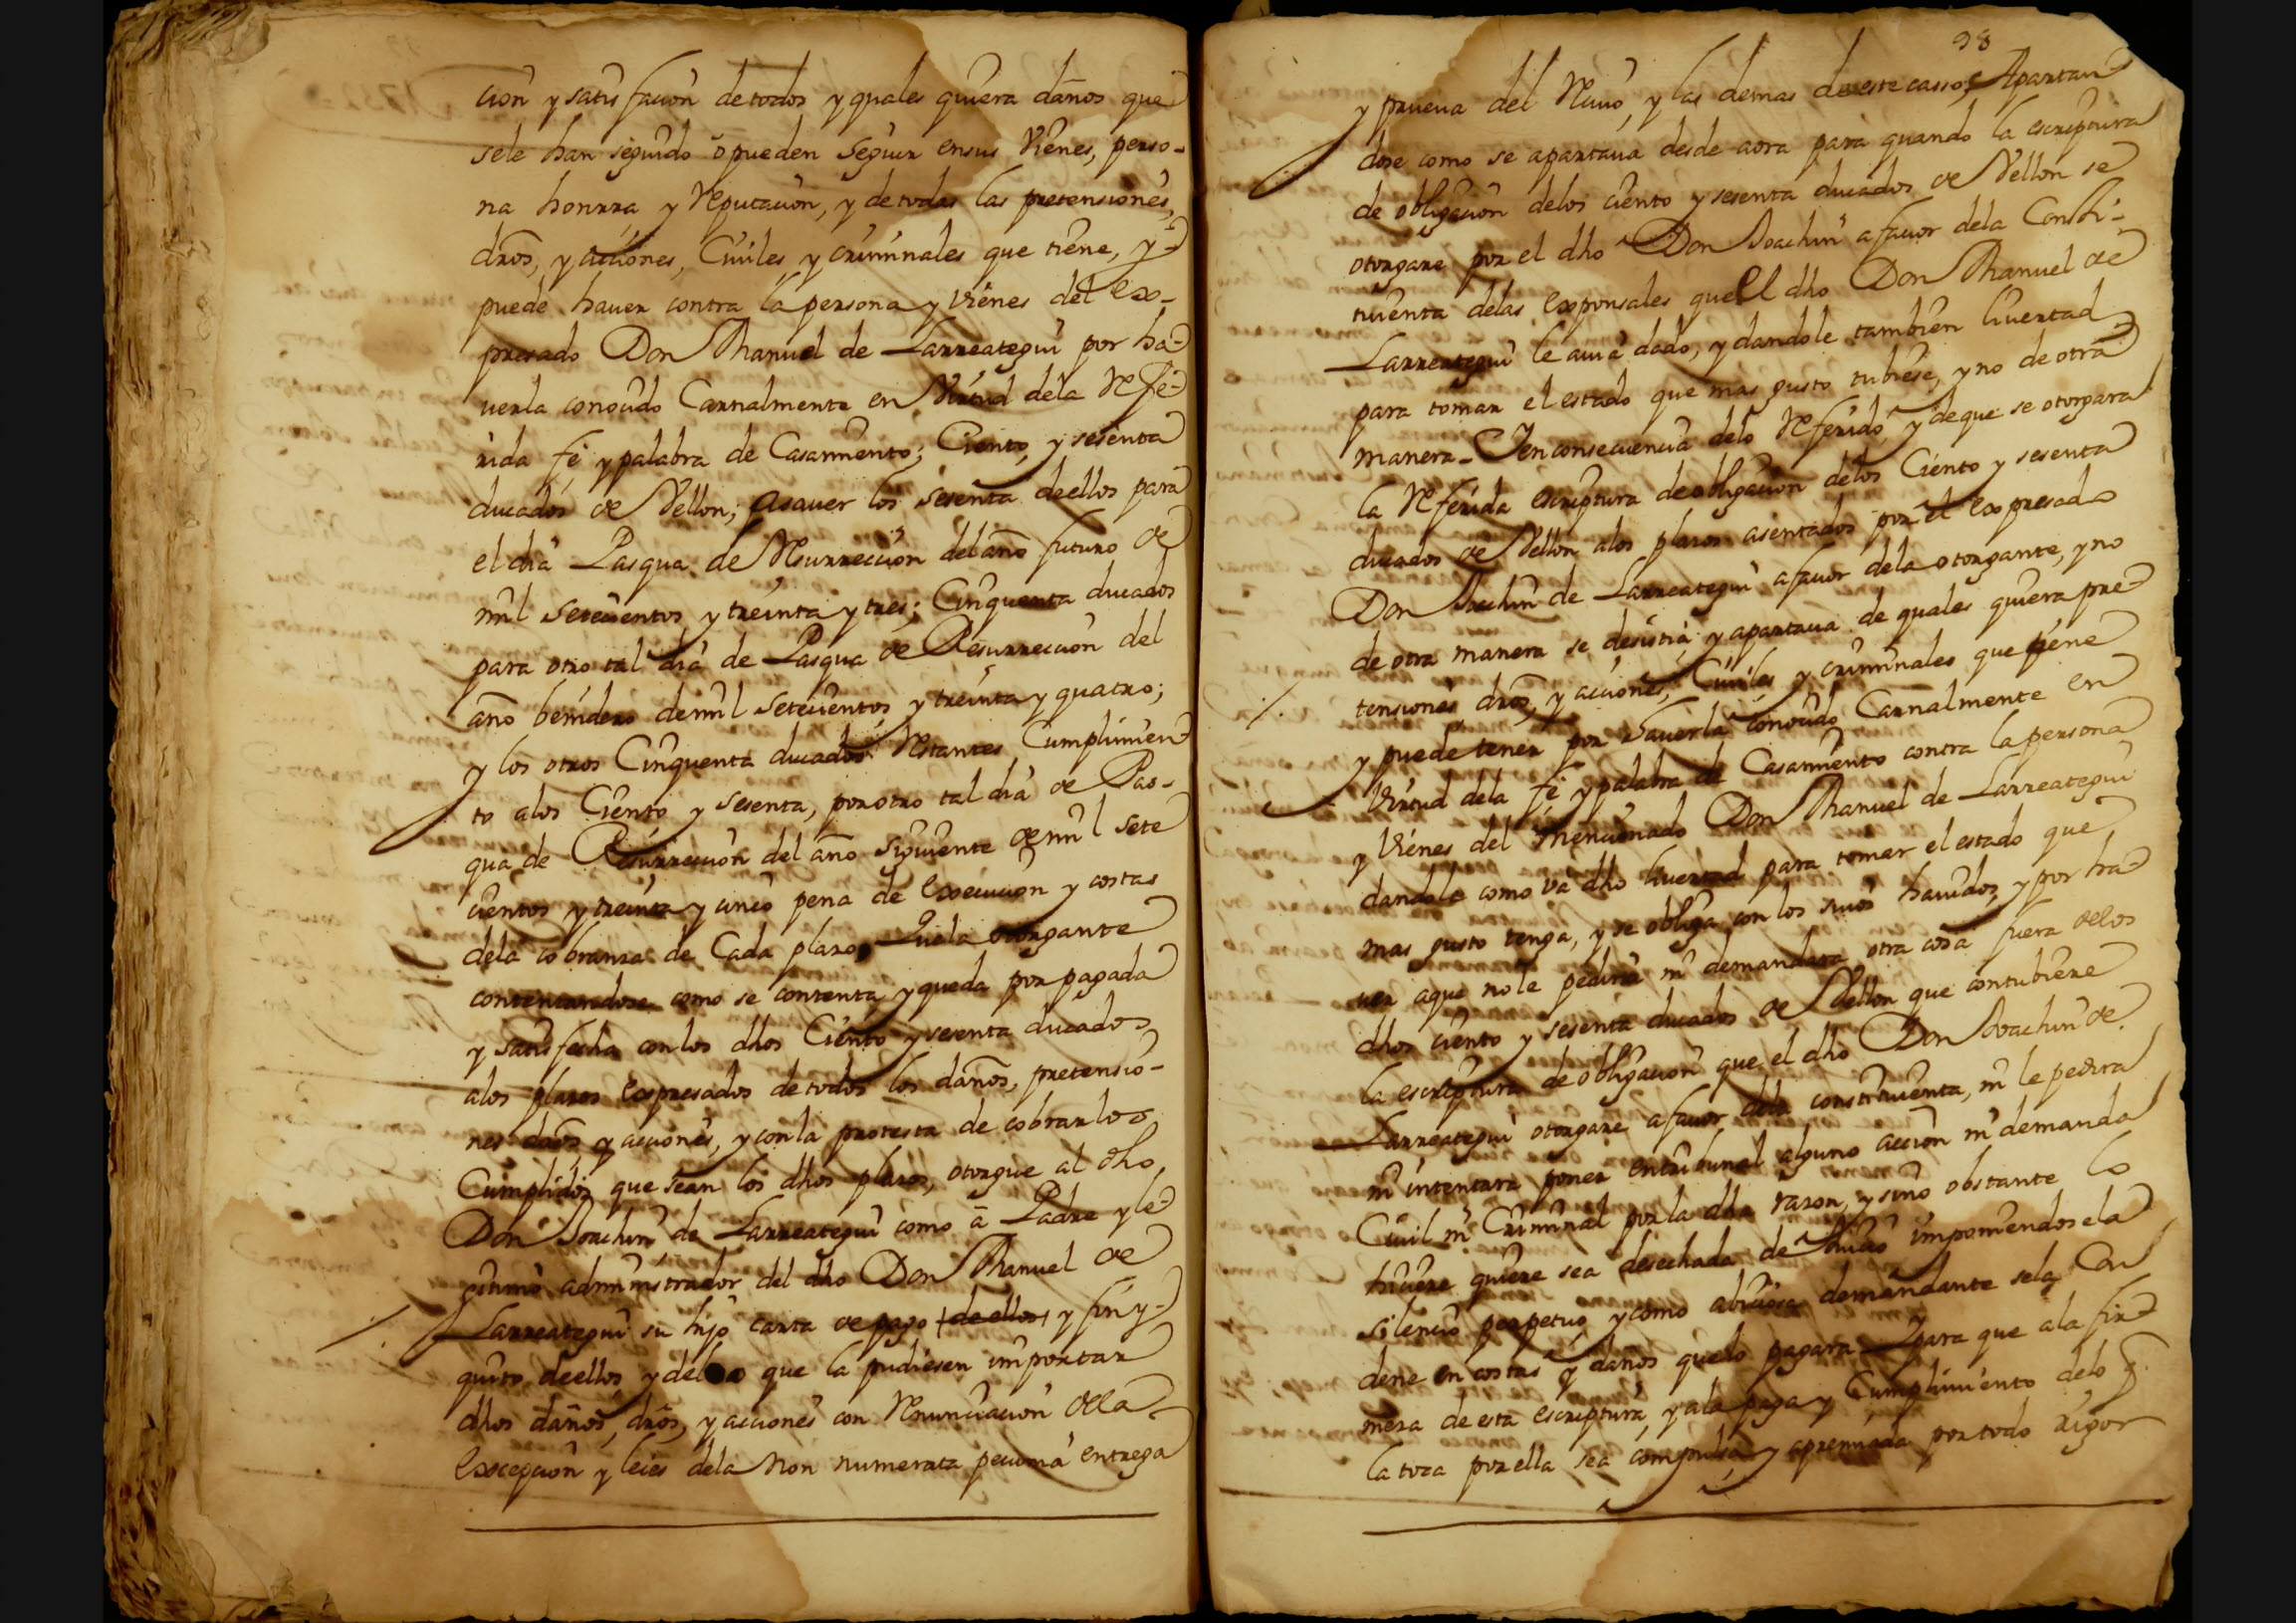 cion y satisfacion de todos y quales quiera daños que
sele han seguido ò pueden seguir ensus Vienes, perso-
na honrra y Reputacion, y de todas las pretensiones,
dr̃os, y acciones, Ciuiles, y criminales que tiene, y
puede hauer contra la persona y vienes del ex-
presado Don Manuel de Larreategui por ha-
uerla conocido Carnalmente en Virtud dela Refe-
rida fe y palabra de Casamiento; Ciento, y sesenta
ducados de Vellon; asauer los sesenta deellos para
el dia Pasqua de Resurreccion del año futuro de
mil setecientos y treinta y tres; Cinquenta ducados
para otro tal dia de Pasqua de Resurreccion del
año benidero demil setecientos y treinta y quatro;
y los otros Cinquenta ducados Restantes Cumplimien-
to alos Ciento y sesenta, por otro tal dia de Pas-
qua de Resurreccion del año siguiente de mil sete
cientos y treinta y cinco pena de execucion y costas
dela cobranza de Cada plazo, Quela otorgante
contentandose como se contenta, y queda por pagada
y satisfecha con los dhos Ciento y sesenta ducados
alos plazos expresados de todos los daños, pretensio-
nes dr̃os, y acciones, y con la protesta de cobrarlos
Cumplidos que sean los dhos plazos, otorgue al dho
Don Joachin de Larreategui como à Padre y le
gitimo administrador del dho Don Manuel de
Larreategui su hijo carta de pago (deellos) y fin y
quito deellos, y delo que la pudiesen importar
dhos daños, dr̃os, y acciones con Renunciacion dela
excepcion y leies dela non numerata pecunia entrega
98
y prueua del Reciuo, y las demas deeste casso; Apartan
dose como se apartaua desde aora para quando la escriptura
de obligacion delos ciento y sesenta ducados de Vellon se
otorgare por el dho Don Joachin a fauor dela Consti-
tuienta delas exponsales que el dho Don Manuel de
Larreategui le auia dado, y dandole tambien liuertad
para tomar el estado que mas gusto tubiese, y no de otra
manera - Y en consecuencia delo Referido, y de que se otorgara
la Referida escriptura de obligacion delos Ciento y sesenta
ducados de Vellon alos plazos asentados por el expresado
Don Joachin de Larreategui a fauor dela otorgante, y no
de otra manera se desistia, y apartaua de quales quiera pre
tensiones dr̃os, y acciones, Ciuiles y criminales que tiene
y puede tener por hauerla conocido Carnalmente en
Virtud dela fe y palabra de Casamiento contra la persona
y Vienes del mencionado Don Manuel de Larreategui
dandole como va dho liuertad para tomar el estado que
mas gusto tenga, y se obliga con los suios hauidos, y por ha
uer aque nole pedira ni demandara otra cosa fuera delos
dhos ciento y sesenta ducados de Vellon que contubiere
la escriptura de obligacion que el dho Don Joachin de
Larreategui otorgare a fauor dela constituienta, ni le pedira
ni intentara poner en tribunal alguno accion ni demanda
Ciuil ni Criminal por la dha razon, y sino obstante lo
hiciere quiere sea desechada de Juicio imponiendosela
silencio perpetuo, y como abiciosa demandante sela Con
dene en costas y daños quelo pagara - Y para que ala fir
meza de esta escriptura, y ala paga y Cumplimiento delo q̃.
la toca por ella sea compulsa y apremiada por todo rigor